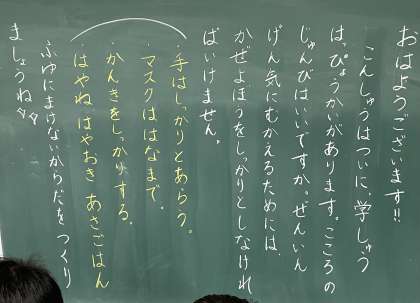 おはようございます!!
こんしゅうはついに、学しゅう
はっぴょうかいがあります。こころの
じゅんびはいいですか。ぜんいん
げん気にむかえるためには、
かぜよぼうをしっかりとしなけれ
ばいけません。
・手はしっかりとあらう。
・マスクははなまで。
・かんきをしっかりする。
・はやね はやおき あさごはん
ふゆにまけないからだをつくり
ましょうね☆☆